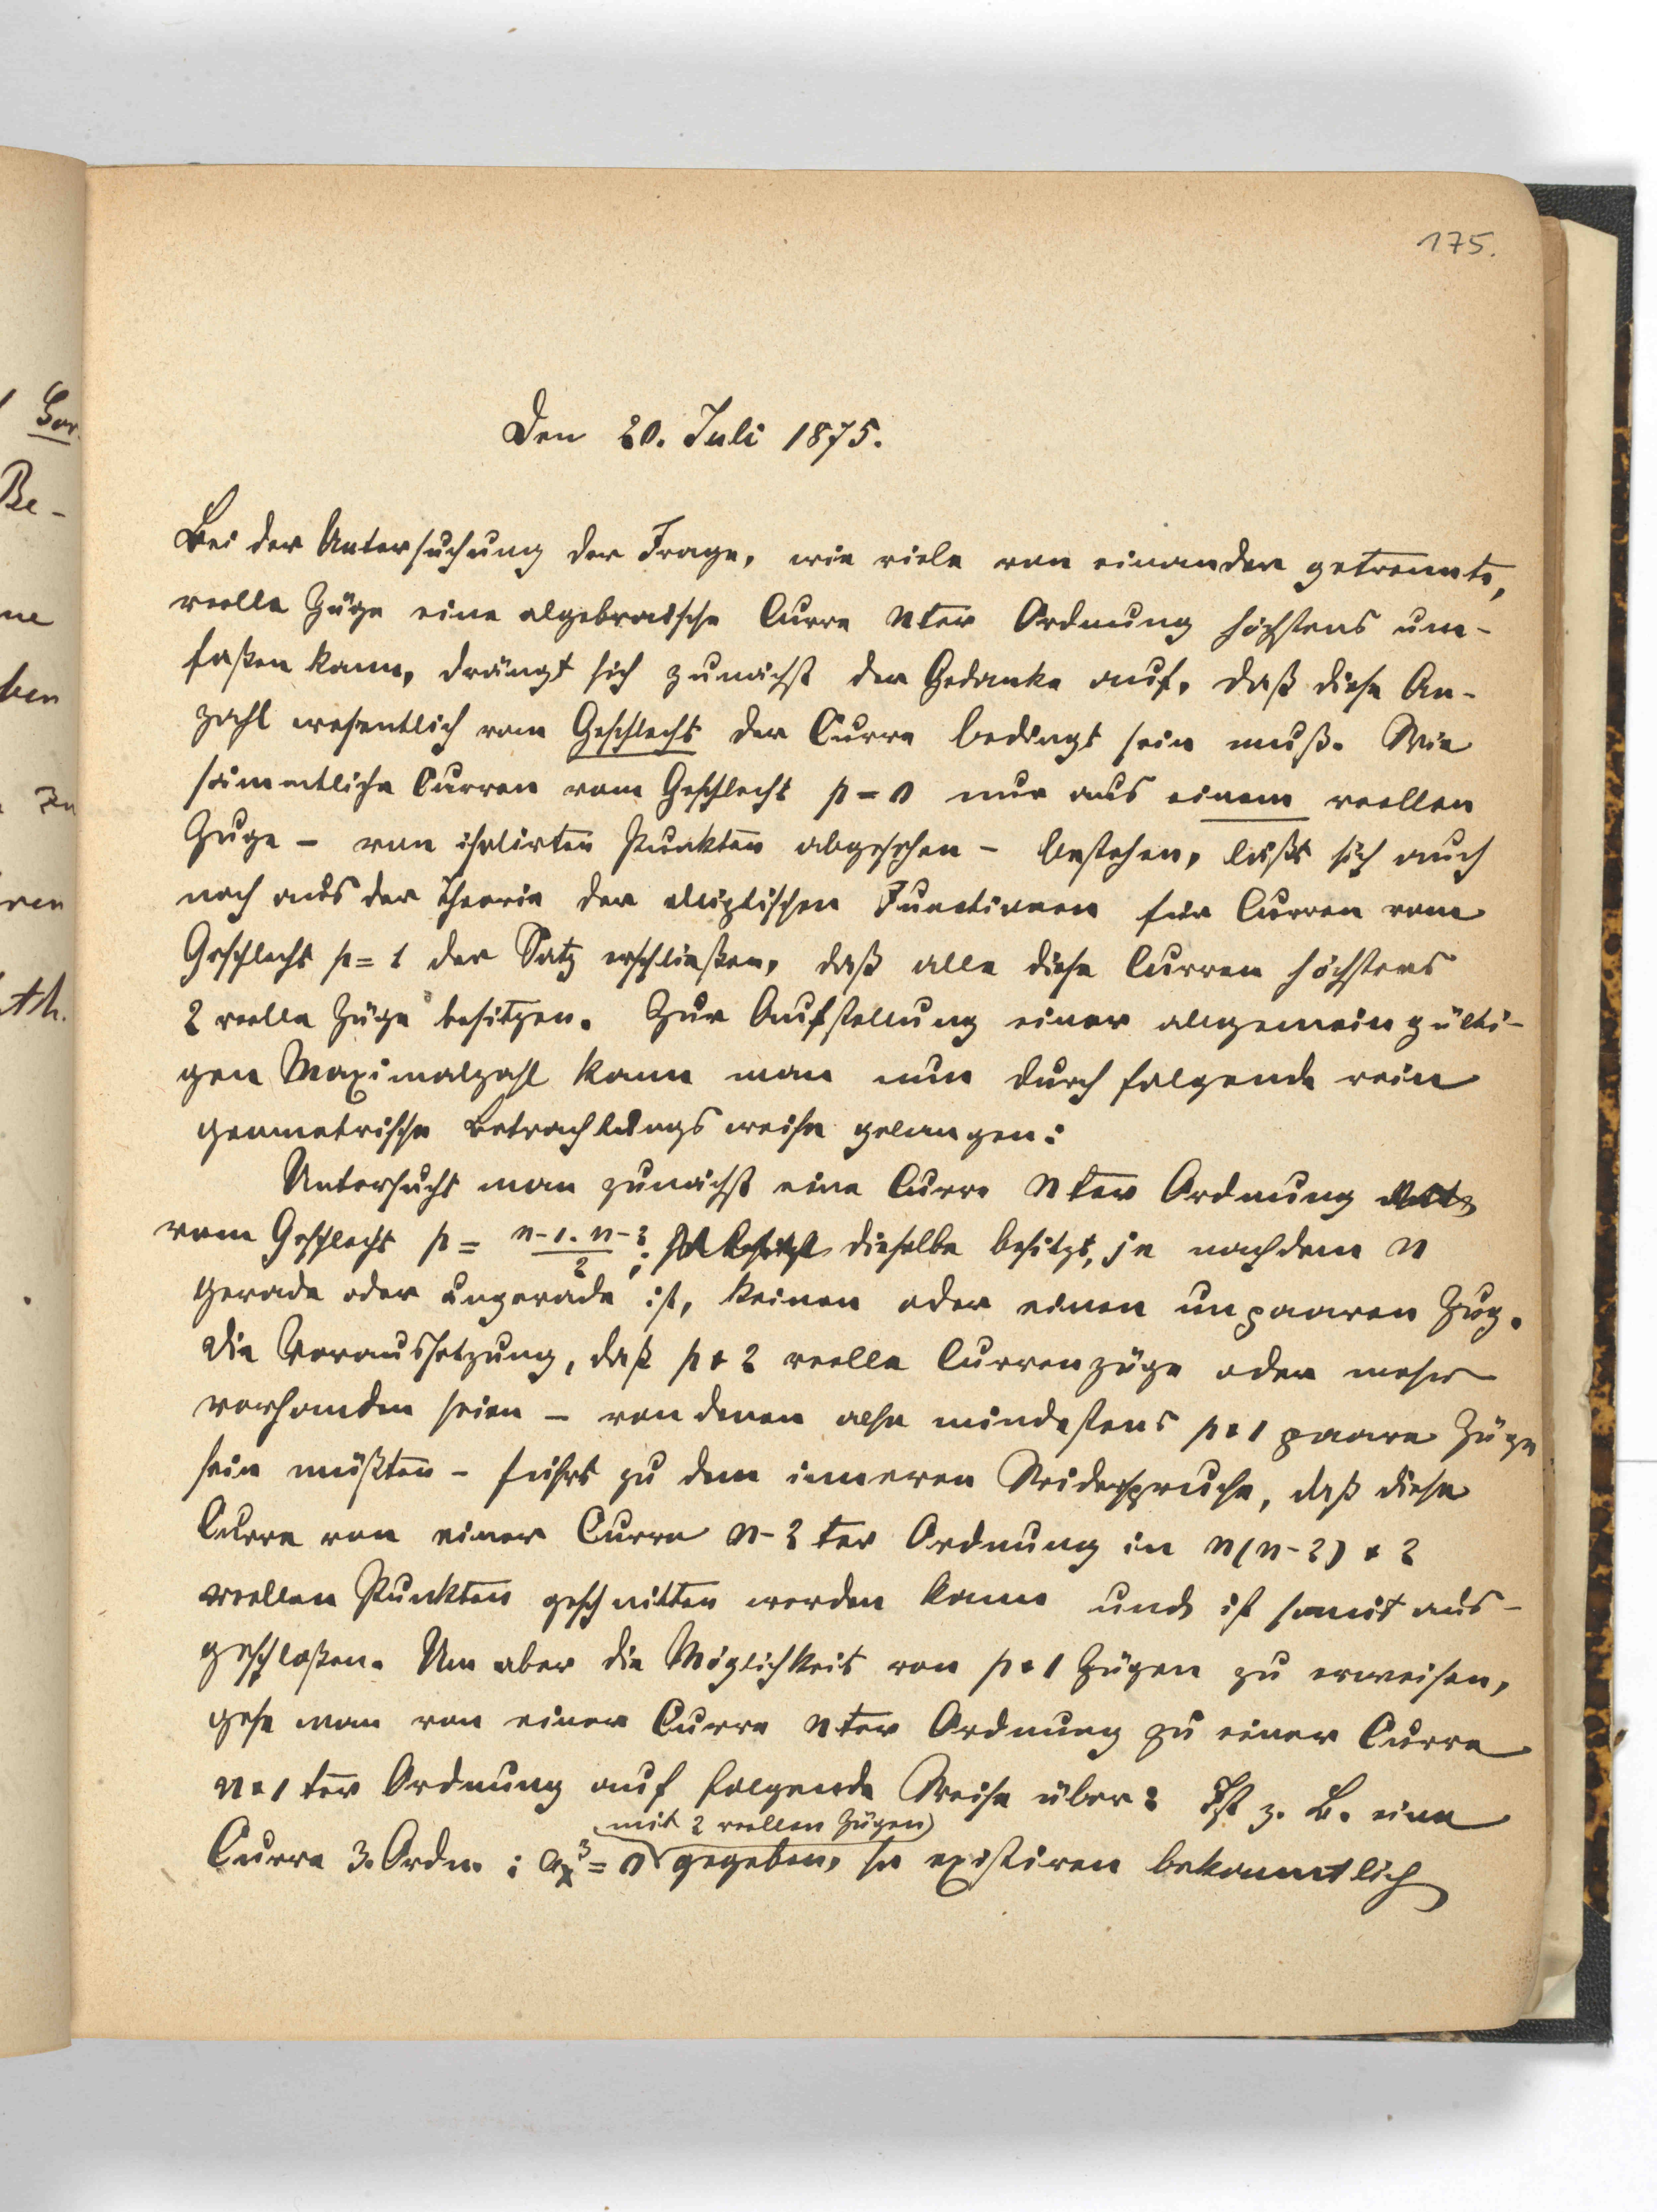 175.
Den 20. Juli 1875.
Bei der Untersuchung der Frage, wie viele von einander getrennte,
reelle Züge eine algebraische Curve nter Ordnung höchstens um-
faßen kann, drängt sich zunächst der Gedanke auf, daß diese An-
zahl wesentlich vom Geschlecht der Curve bedingt sein muß. Wie
sämmtliche Curven vom Geschlecht p=0 nur aus einem reellen
Zuge – von isolirten Punkten abgesehen – bestehen, läßt sich auch
noch aus der Theorie der elliptischen Functionen für Curven vom
Geschlecht p=1 der Satz erschließen, daß alle diese Curven höchstens
2 reelle Züge besitzen. Zur Aufstellung einer allgemein gülti-
gen Maximalzahl kann man nun durch folgende rein
geometrische Betrachtungsweise gelangen:
Untersucht man zunächst eine Curve nter Ordnung
vom Geschlecht p = n-1.n-2/2; dieselbe besitzt, je nachdem n
gerade oder ungerade ist, keinen oder einen unpaaren Zug.
Die Voraussetzung, daß p+2 reelle Curvenzüge oder mehr
vorhanden seien – von denen also mindestens p+1 paare Züge
sein müßten – führt zu dem inneren Widerspruche, daß diese
Curve von einer Curve n-2ter Ordnung in n(n-2)+2
reellen Punkten geschnitten werden kann und ist somit aus-
geschloßen. Um aber die Möglichkeit von p+1 Zügen zu erweisen,
gehe man von einer Curve nter Ordnung zu einer Curve
n+1ter Ordnung auf folgende Weise über: Ist z. B. eine
(mit 2 reellen Zügen)
Curve 3. Ordn. : aₓ³=0 gegeben, so existiren bekanntlich
Be-
ben